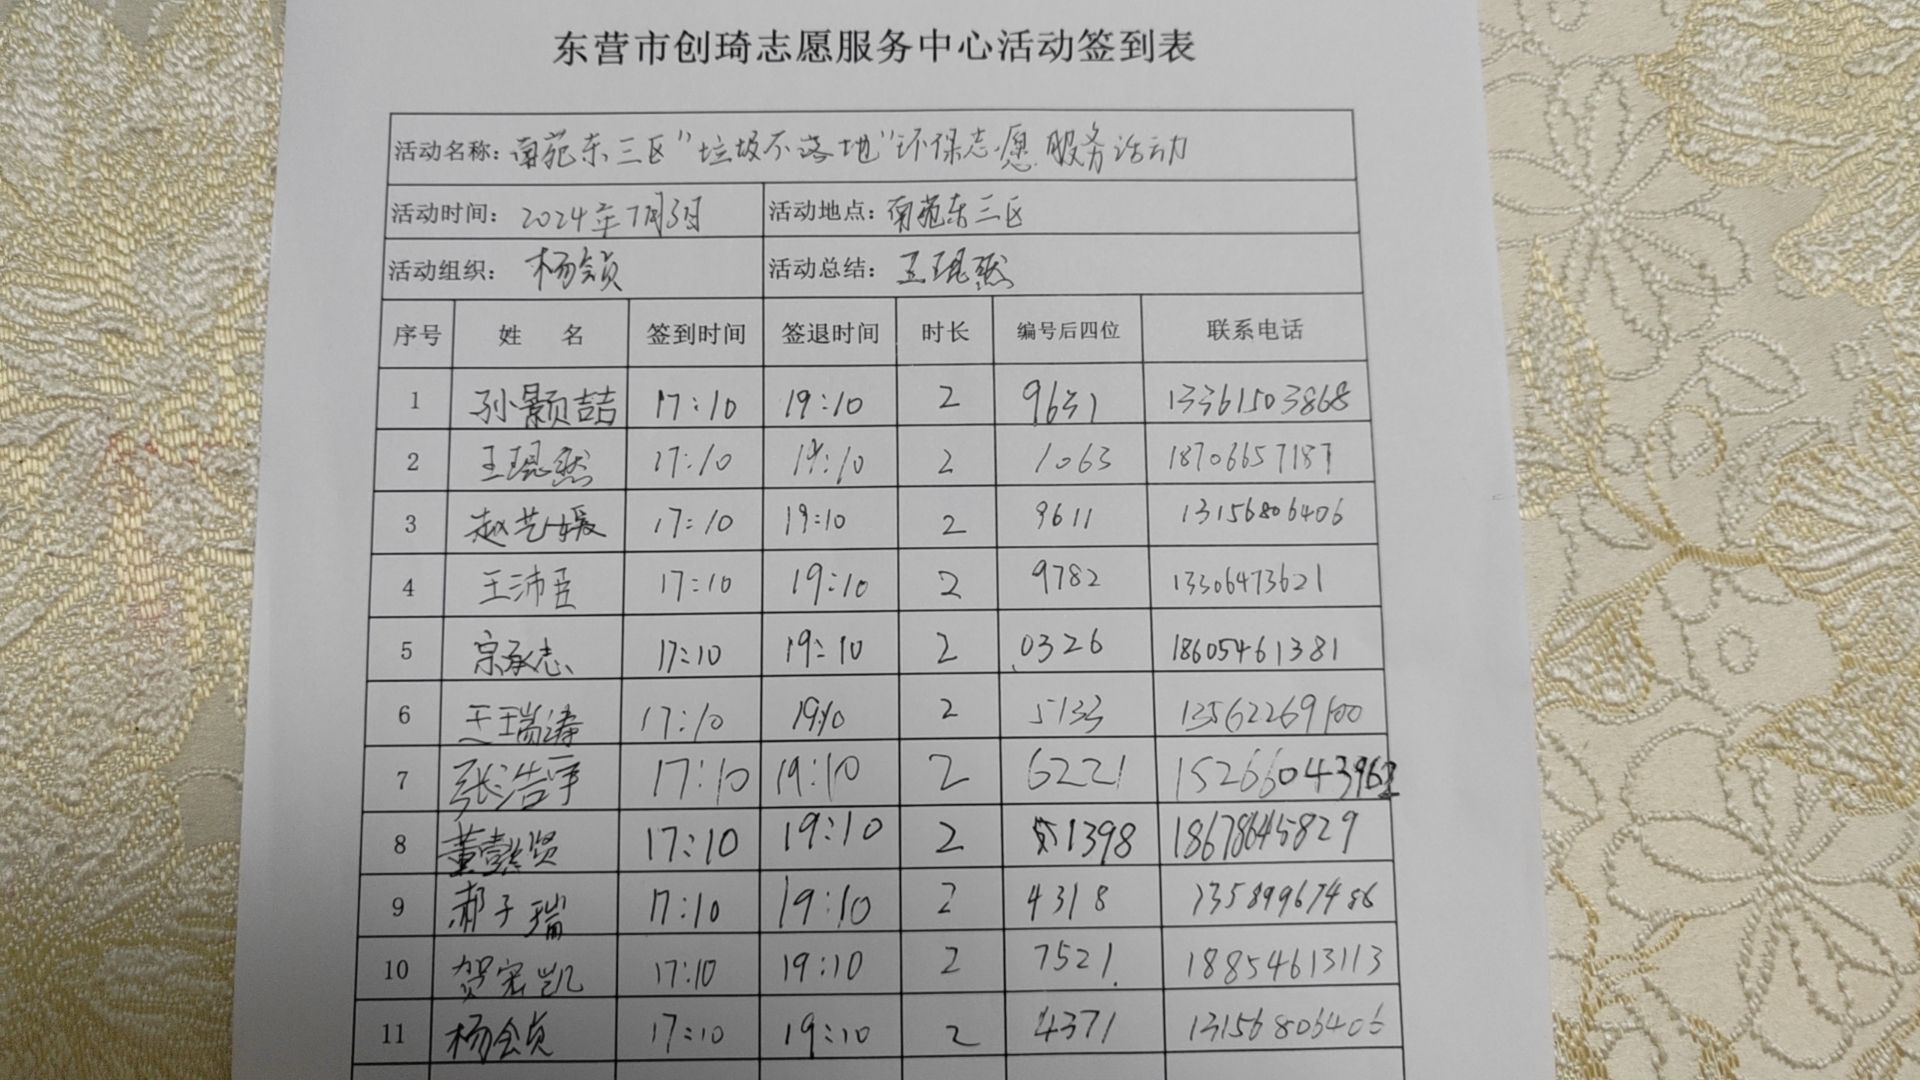 东营市创琦志愿服务中心活动签到表
活动名称：南苑东三区"垃圾不落地"环保志愿服务活动
活动时间：2024年7月3日 活动地点：南苑东三区
活动组织：杨会贞 活动总结：王琨然
序号 姓 名 签到时间 签退时间 时长 编号后四位 联系电话
1 孙颢喆 17:10 19:10 2 9631 13361503868
2 王琨然 17:10 19:10 2 1063 18706657187
3 赵艺媛 17:10 19:10 2 9611 13156806406
4 王沛臣 17:10 19:10 2 9782 13306473621
5 宗承志 17:10 19:10 2 0326 18605461381
6 王瑞涛 17:10 19:10 2 5133 13562269100
7 张浩宇 17:10 19:10 2 6221 15266043962
8 董懿贤 17:10 19:10 2 1398 18678645829
9 郝子瑞 17:10 19:10 2 4318 13589967486
10 贺宏凯 17:10 19:10 2 7521 18854613113
11 杨会贞 17:10 19:10 2 4371 13156806406